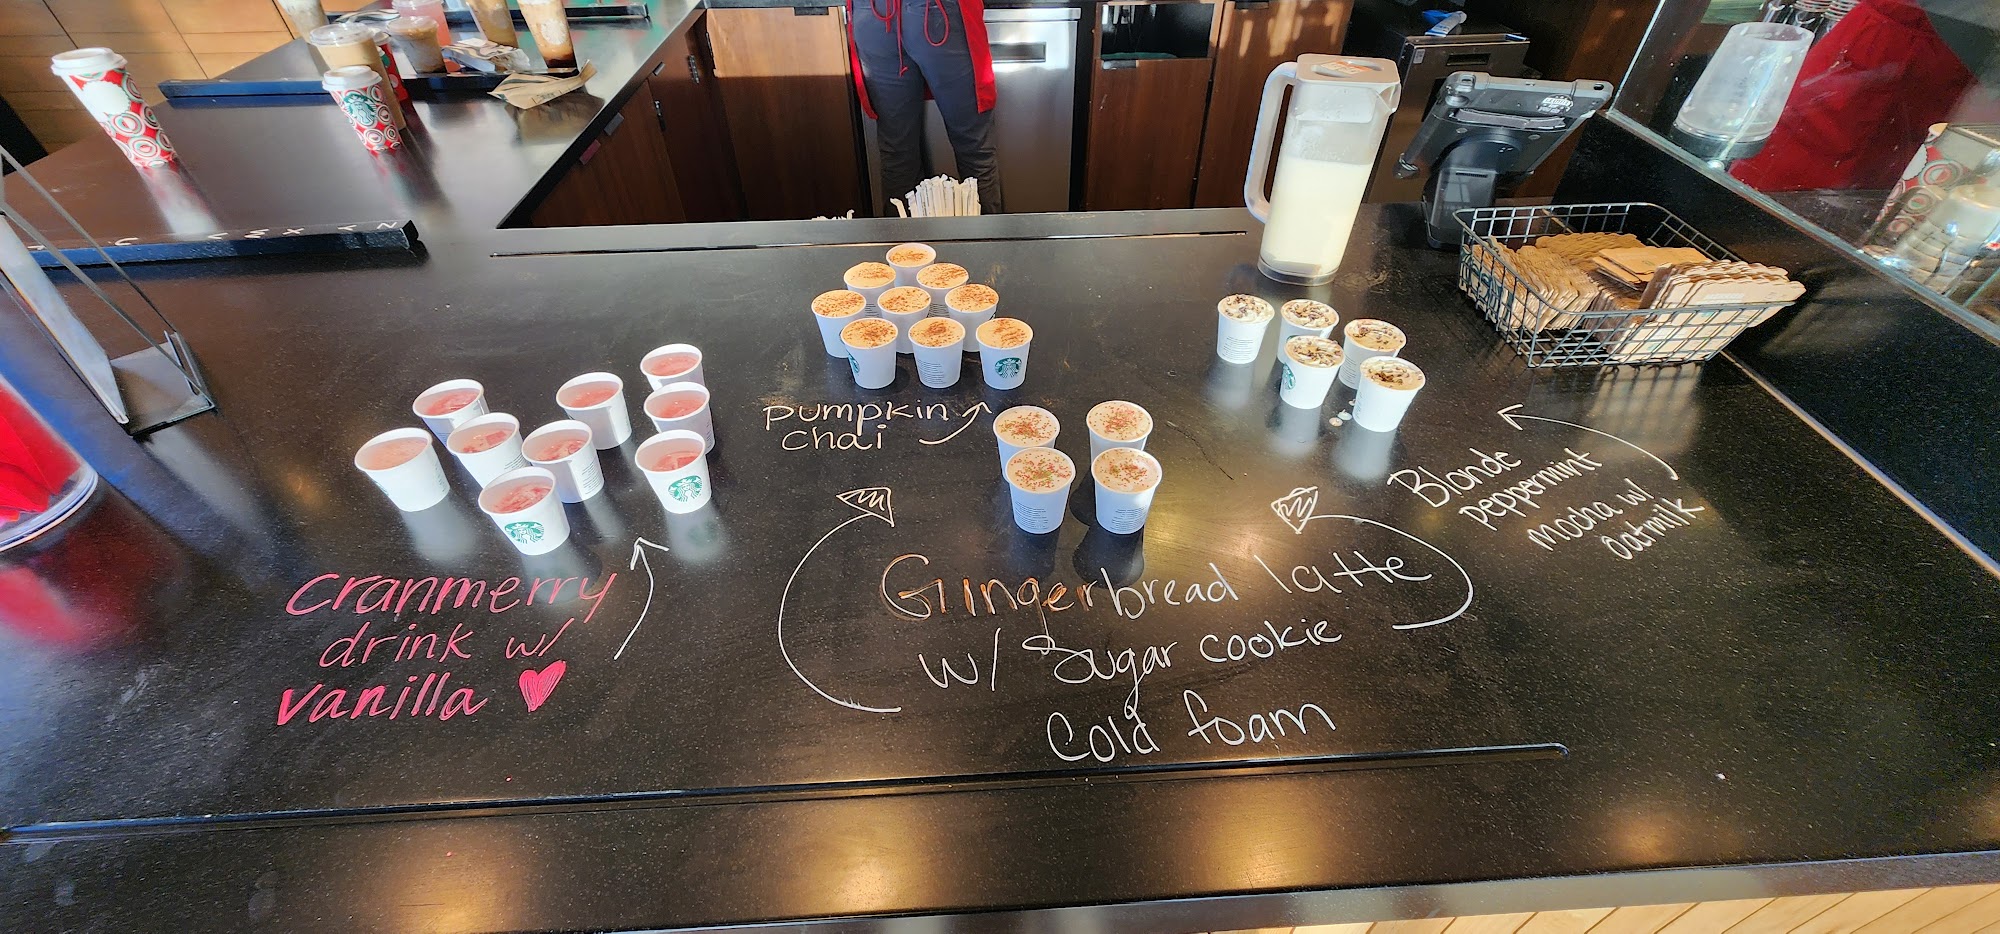 pumpkin
chai
Cranmerry
drink w/
vanilla
Gingerbread latte
w/ Sugar cookie
Cold foam
Blonde
peppermint
mocha w/
oatmilk